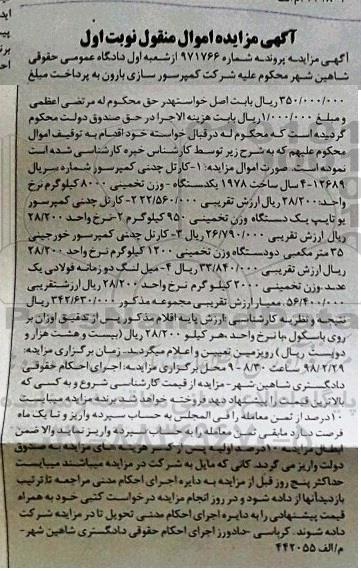 آگهی مزایده اموال منقول نوبت اول
آگهی مزایـده پرونـده شماره ۹۷۱۷۶۶ ازشعبه اول دادگاه عمومی حقوقی
شاهین شهر محکوم علیه شرکت کمپرسور سازی بارون به پرداخت مبلغ
۳۵۰/۰۰۰/۰۰۰ ریال بابت اصل خواسته در حق محکوم له مرتضی اعظمی
و مبلغ ۱/۰۰۰/۰۰۰ ریال بابت هزینه الاجرا در حـق صندوق دولت محکوم
گردیده است کـه محکـوم لـه درقبال خواسته خود اقدام بـه توقیف اموال
محکوم علیهم که به شرح زیر توسط کارشناس خبره کارشناسی شده است
نموده است. صورت اموال مزایده: ۱-کارتل چدنی کمپرسور شماره سریال
۴-۱۲۶۸۹ سال ساخت ۱۹۷۸ یکدستگاه - وزن تخمینی ۸۰۰۰ کیلوگرم نرخ
واحد:۲۸/۲۰۰ ریال ارزش تقریبی ۲۲۲/۵۶۰/۰۰۰-۲ کارتل چدنی کمپرسور
یو تایپ یک دستگاه وزن تخمینی ۹۵۰ کیلوگرم ۲-نرخ واحد ۲۸/۲۰۰
ریال ارزش تقریبی ۲۶/۷۹۰/۰۰۰ ریال ۳- کارتل چدنی کمپرسور خورجینی
۳۵ متر مکعبی دودستگاه وزن تخمینی ۱۲۰۰ کیلوگرم نرخ واحد ۲۸/۲۰۰
ریال ارزش تقریبی ۳۳/۸۴۰/۰۰۰ ریال ۴- میل لنگ دو زمانه فولادی یک
عدد وزن تخمینی ۲۰۰۰ کیلو گرم نرخ واحد ۲۸/۲۰۰ ریال ارزش تقریبی
۵۶/۴۰۰/۰۰۰. معیار ارزش تقریبی مجموعه مذکور ۳۴۲/۶۳۰/۰۰۰ ریال
نتیجه و نظریه کارشناسی: ارزش پایه اقلام مذکور پس از تدقیق اوزان بر
روی باسکول با نرخ واحد هر کیلو ۲۸/۲۰۰ ریال (بیست و هشت هزار و
دویست ریال ) روبزمین تعیین و اعلام میگردید. زمان برگزاری مزایده:
۹۸/۲/۲۹ ساعت ۸/۳۰-۹ محل برگزاری مزایده: اجرای احکام حقوقی
دادگستری شاهین شهر- مزایده از قیمت کارشناسی شروع و به کسی که
بالاترین قیمت را پیشنهاد دهد فروخته خواهد شد برنده مزایده میبایست
۱۰درصد از ثمن معامله را فی المجلس به حساب سپرده واریز و تا یک ماه
فرصت دارد مابقی ثمن معامله را به حساب سپرده واریز نماید والا ضمن
ابطال مزایده ۱۰درصد اولیه پس از کسر هزینه های مزایده به صندوق
دولت واریز می گردد. کسانی که مایل به شرکت در مزایده میباشند میبایست
حداکثر پنج روز قبل از مزایده به دایره اجرای احکام مدنی مراجعه تا ترتیب
بازدید آنها از داده شود و در روز انجام مزایده درخواست کتبی خود به همراه
قیمت پیشنهادی را به دایـره اجرای احکام مدنی تحویل تا در مزایده شرکت
داده شوند. کرباسی -دادورز اجرای احکام حقوقی دادگستری شاهین شهر-
م/الف ۴۴۲۰۵۵